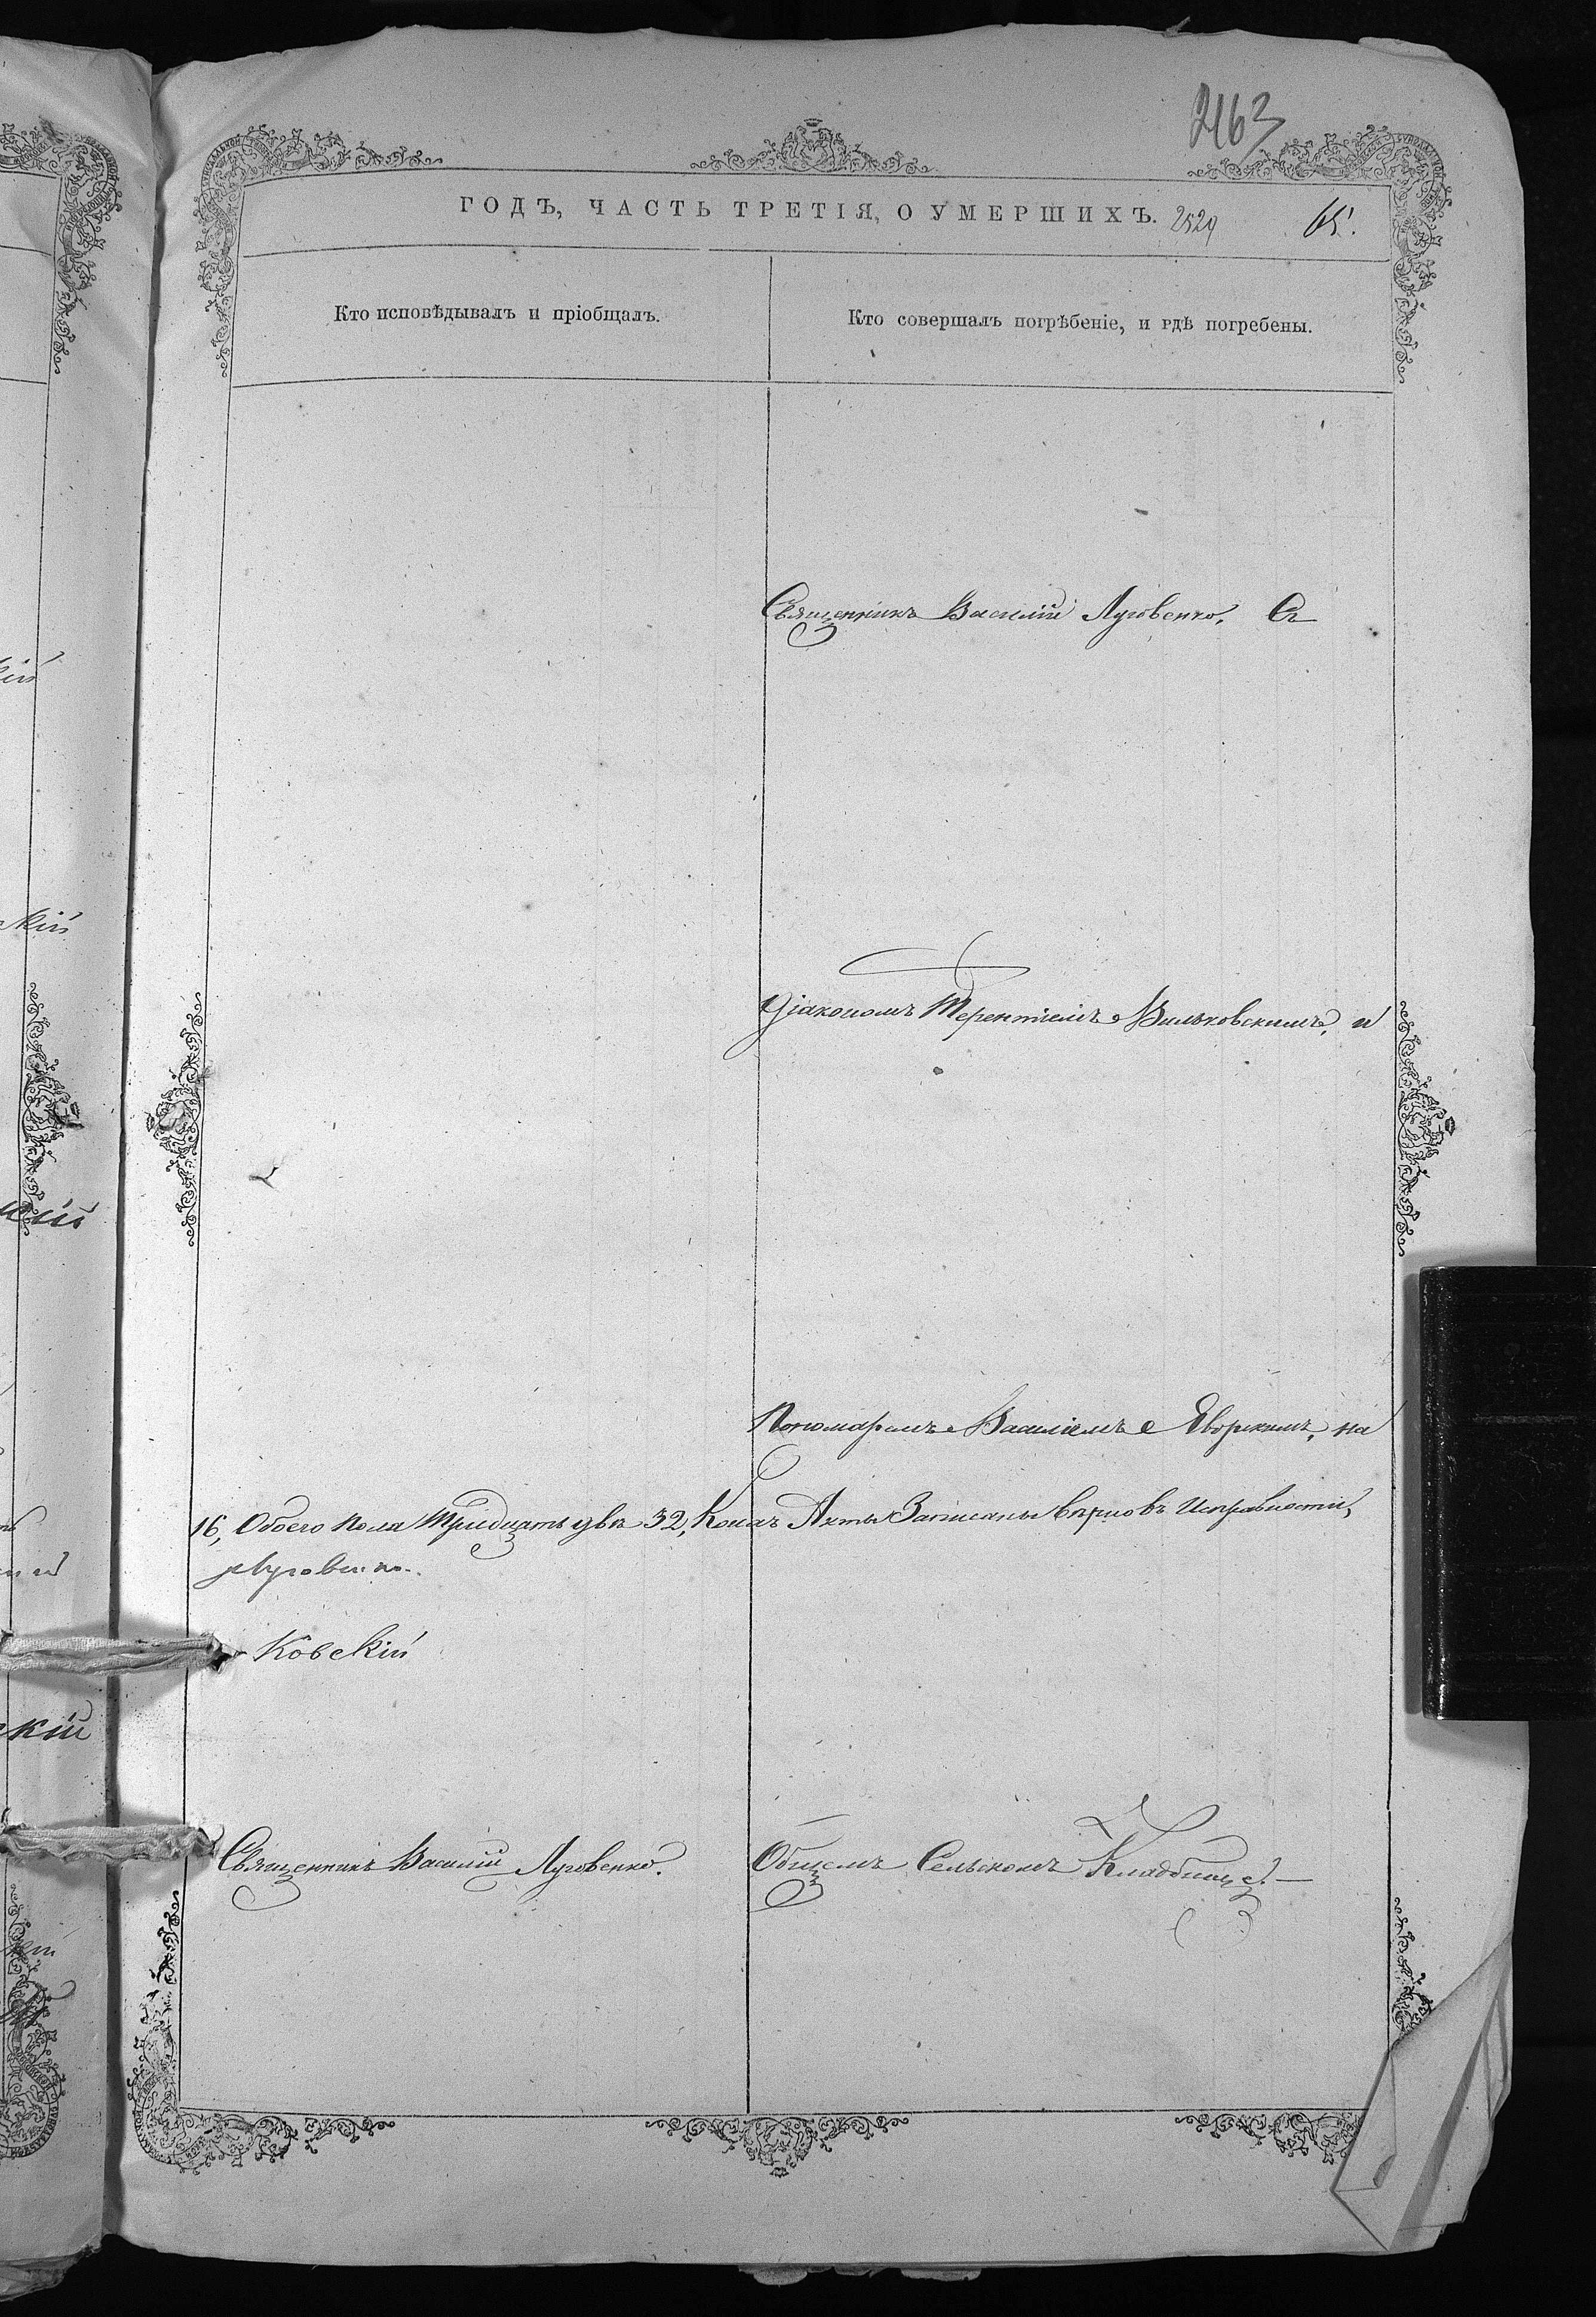 2163
ГОДЪ, ЧАСТЬ ТРЕТІЯ, О УМЕРШИХЪ. 2529 65.
Кто исповѣдывалъ и пріобщалъ.
Кто совершалъ погрѣбеніе, и гдѣ погребены.
Священникъ Василій Луговенко, Съ
Діакономъ Терентіемъ Вильковскимъ, и
Пономаремъ Василіемъ Яворскимъ, на
16, Обоего Пола Тридцать два 32, Коихъ Акты Записаны вѣрно въ Исправности,
Луговенко.
Ковскій
Священникъ Василій Луговенко.
Общемъ Сельскомъ Кладбищѣ. —
кій
скій
скій